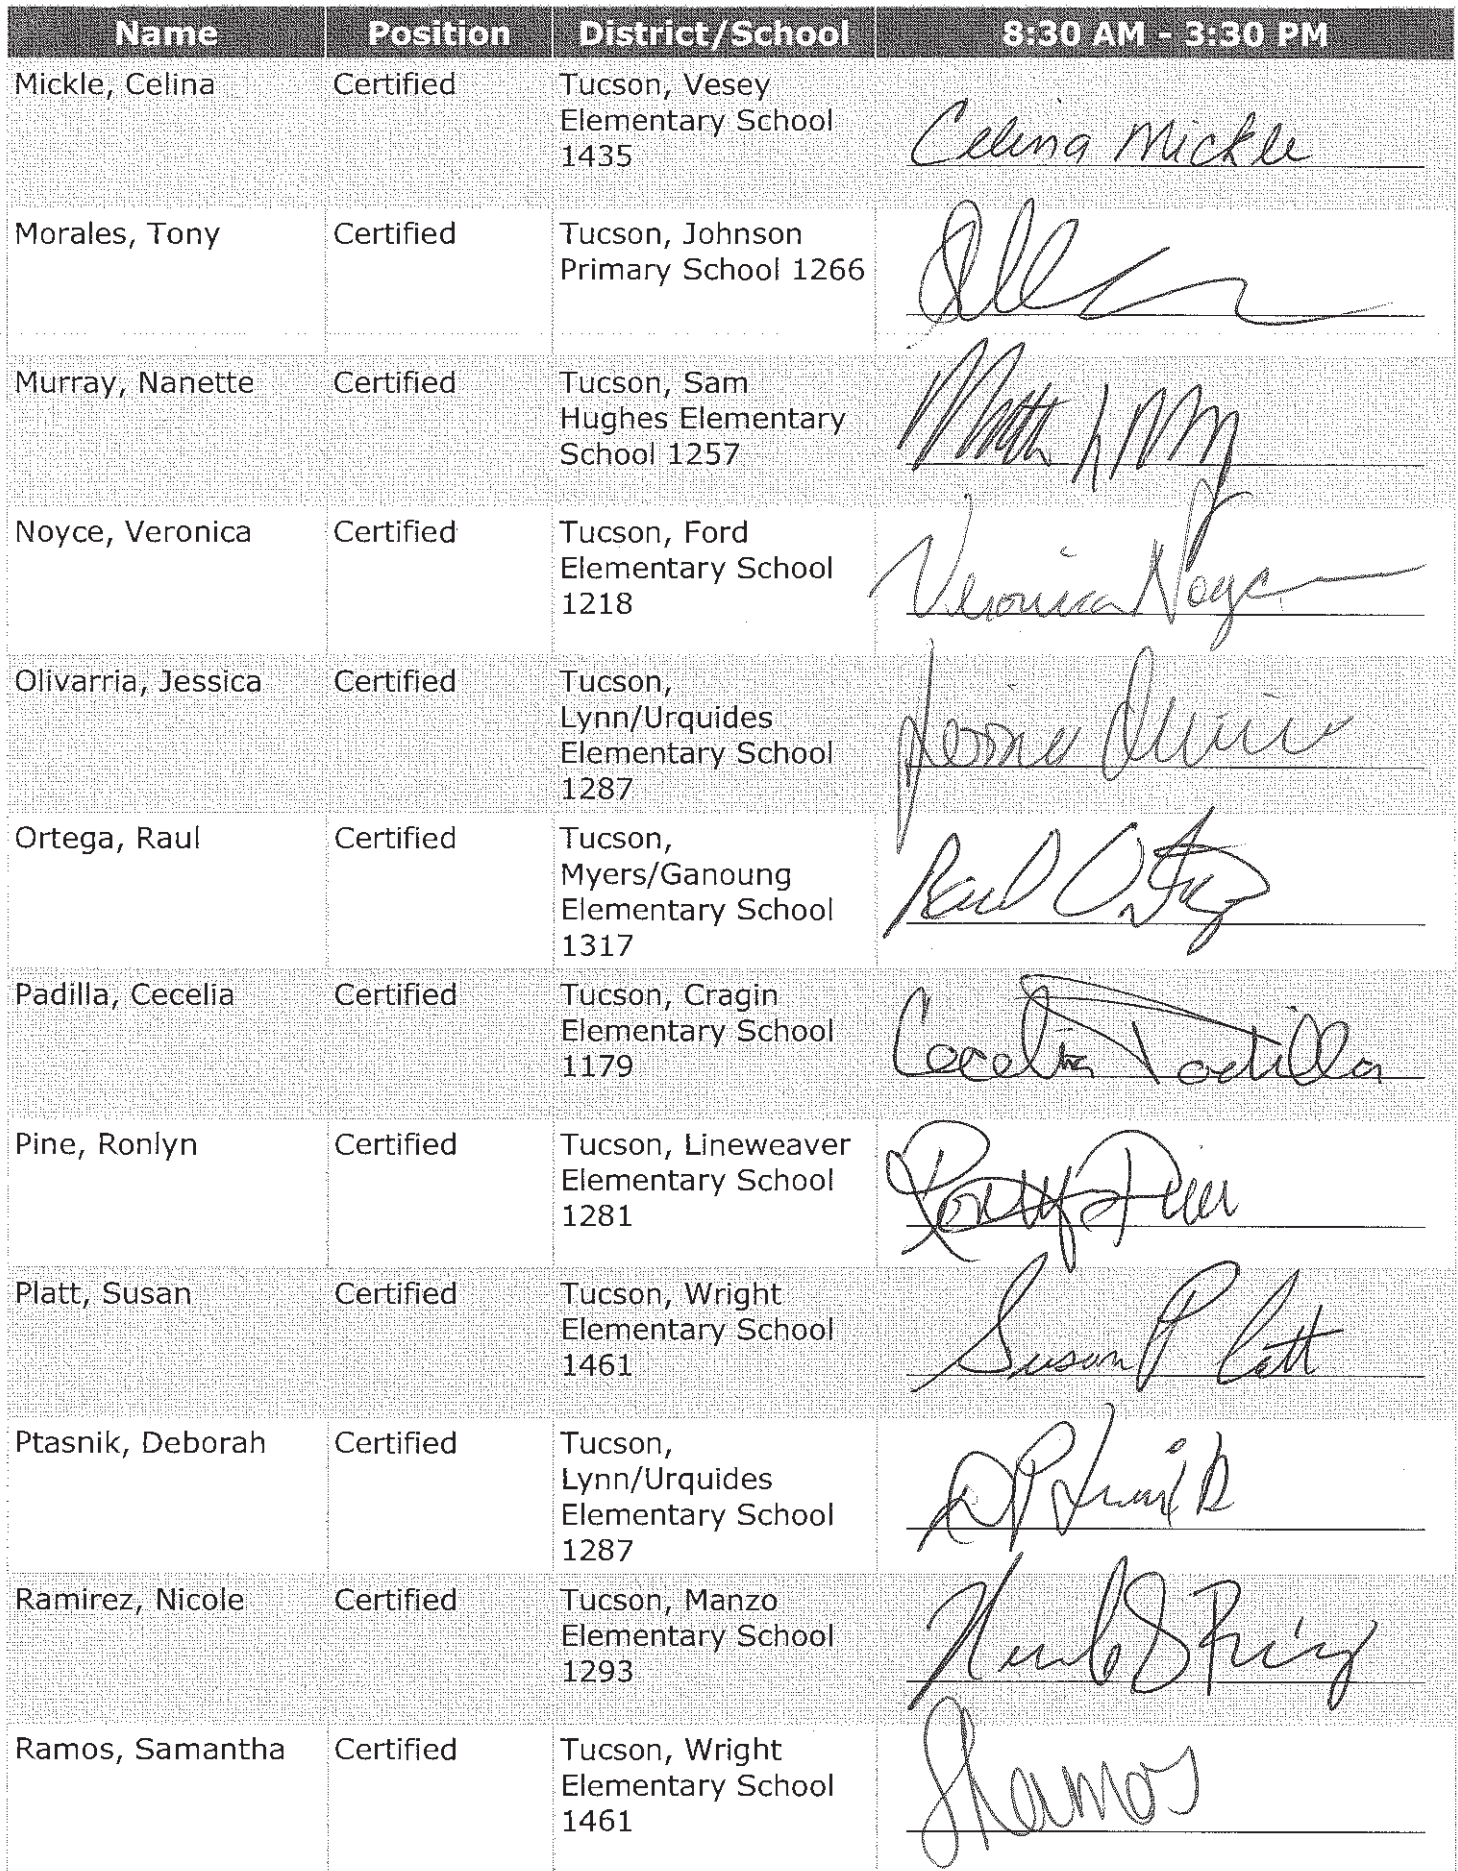 Name Position District/School 8:30 AM - 3:30 PM
Mickle, Celina Certified Tucson, Vesey
Elementary School
1435
Celina Mickle
Morales, Tony Certified Tucson, Johnson
Primary School 1266
Murray, Nanette Certified Tucson, Sam
Hughes Elementary
School 1257
Noyce, Veronica Certified Tucson, Ford
Elementary School
1218
Veronica Noyce
Olivarria, Jessica Certified Tucson,
Lynn/Urquides
Elementary School
1287
Jessica
Ortega, Raul Certified Tucson,
Myers/Ganoung
Elementary School
1317
Raul Ortega
Padilla, Cecelia Certified Tucson, Cragin
Elementary School
1179
Cecelia Padilla
Pine, Ronlyn Certified Tucson, Lineweaver
Elementary School
1281
Platt, Susan Certified Tucson, Wright
Elementary School
1461
Susan Platt
Ptasnik, Deborah Certified Tucson,
Lynn/Urquides
Elementary School
1287
D Ptasnik
Ramirez, Nicole Certified Tucson, Manzo
Elementary School
1293
Ramos, Samantha Certified Tucson, Wright
Elementary School
1461
SRamos